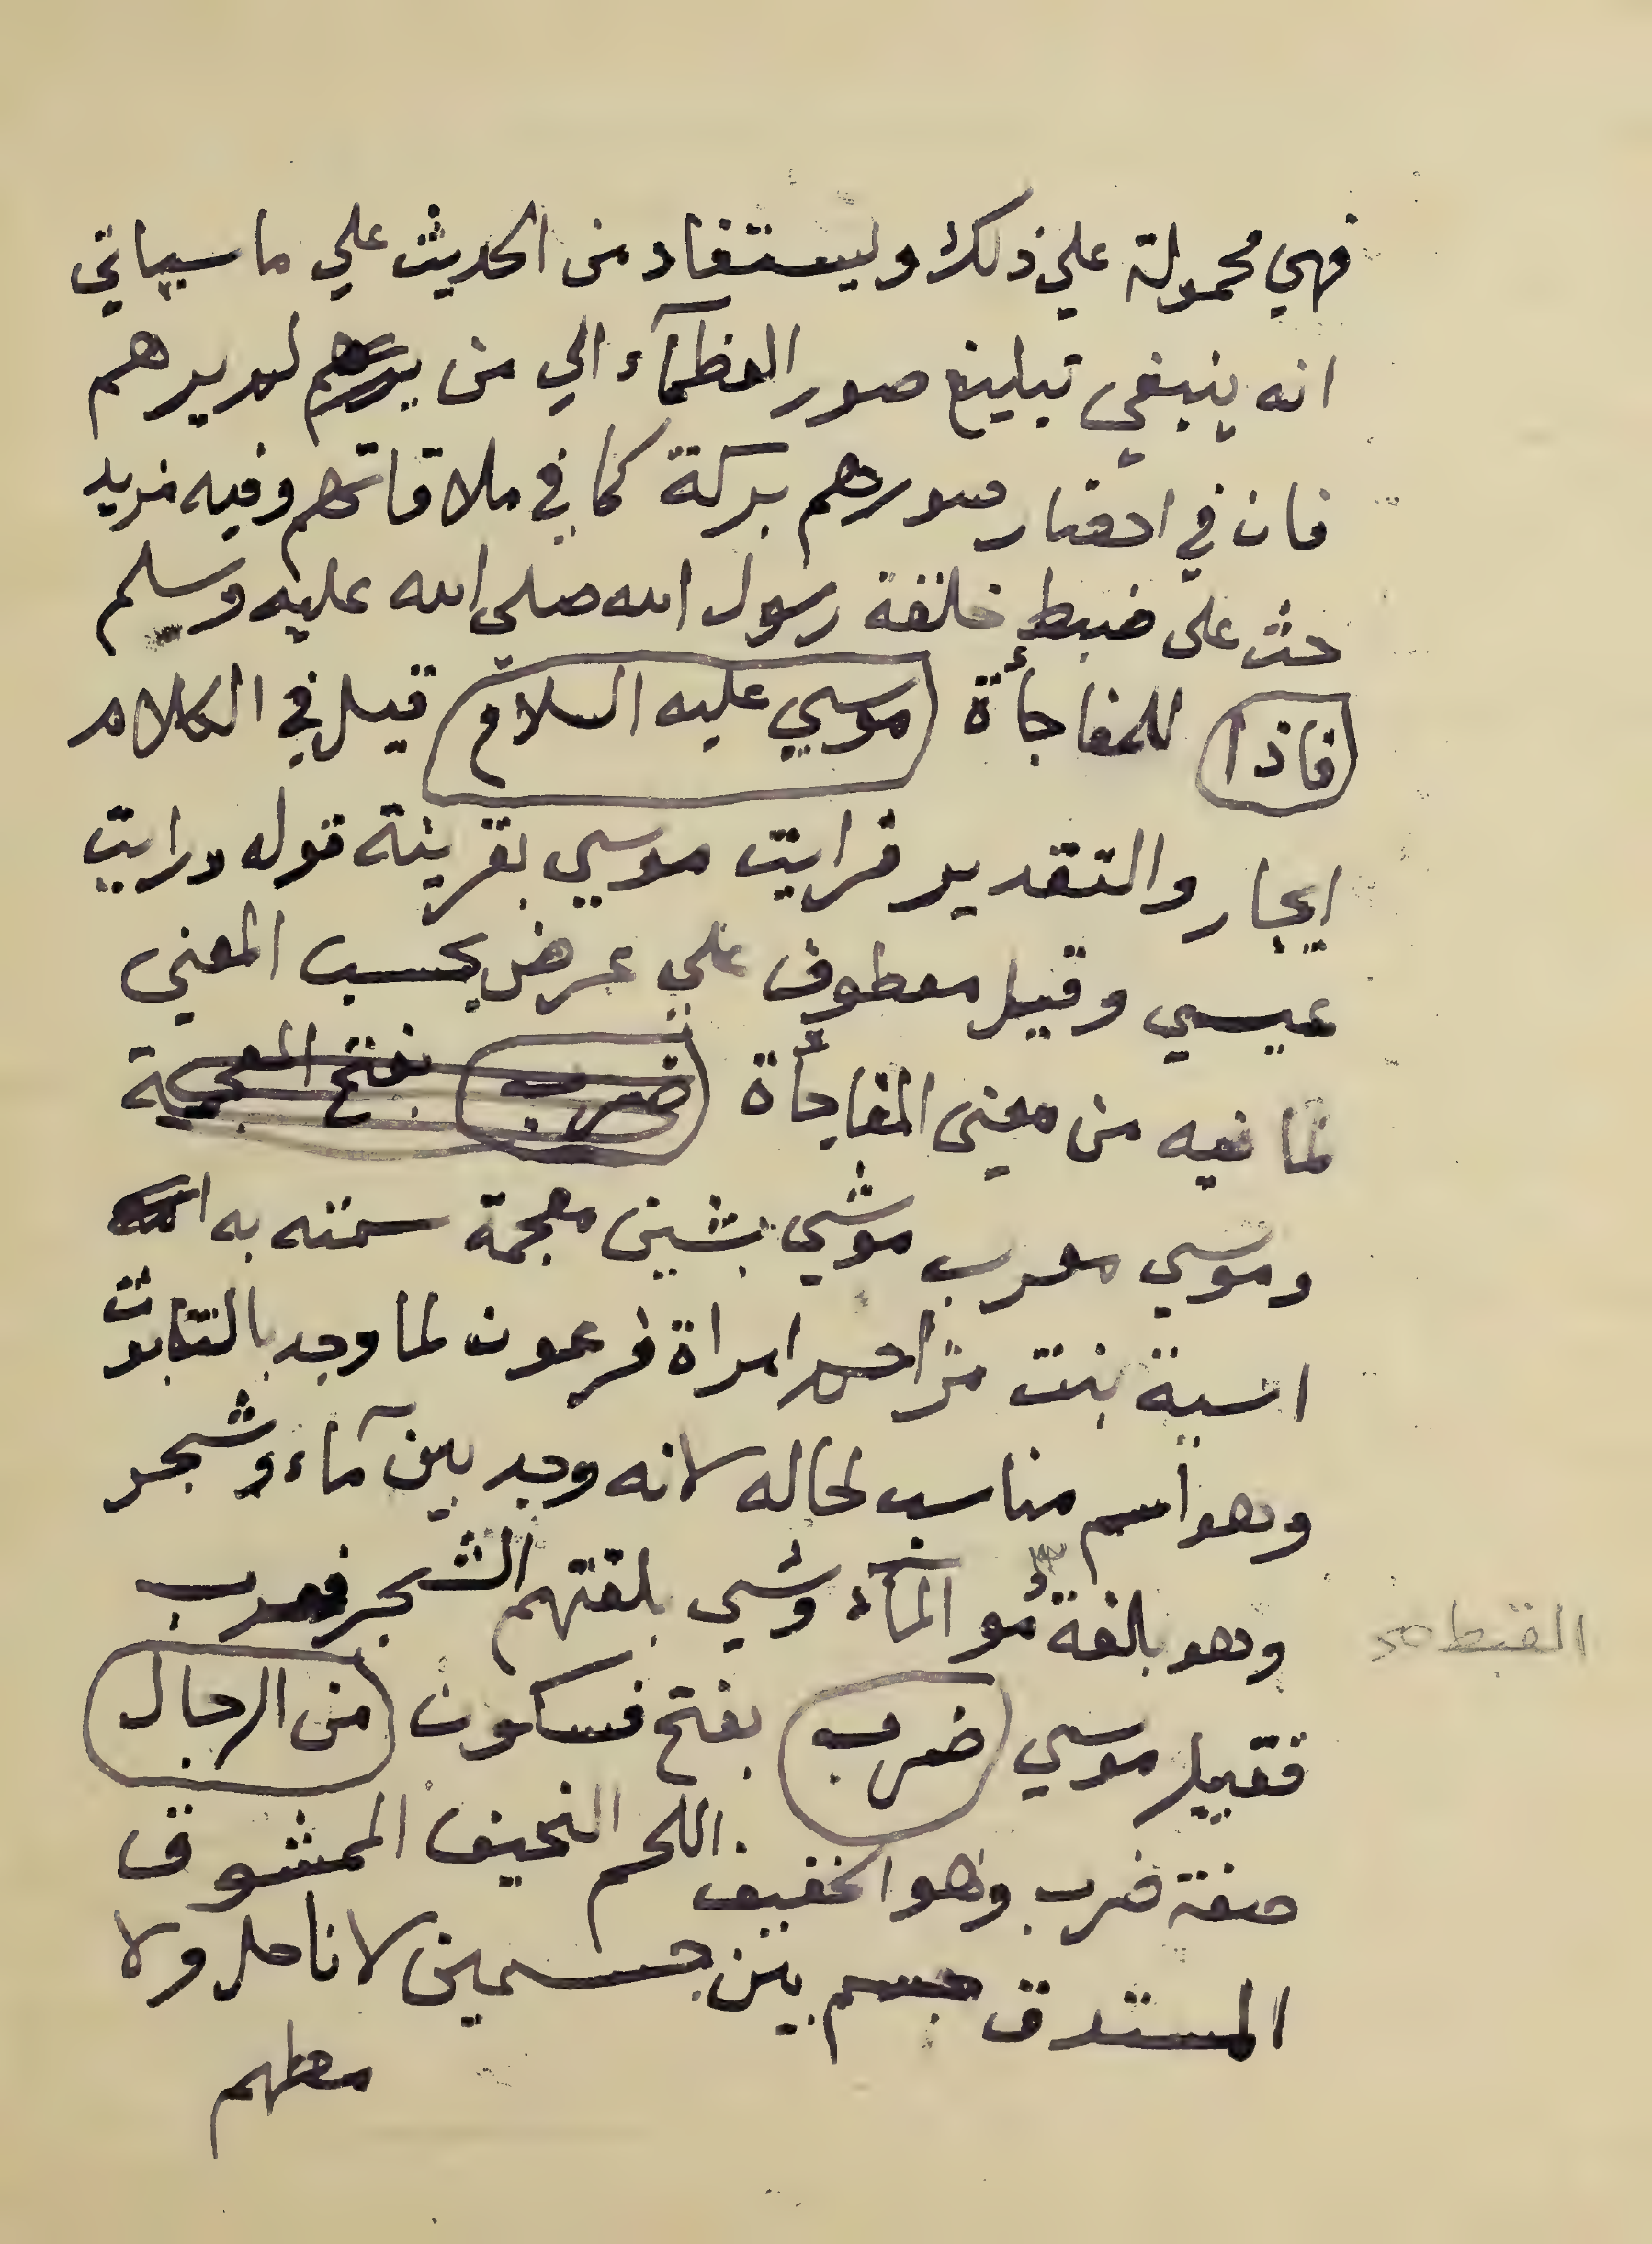 فهي محمولة علي ذلك وليستفاد من الحديث علي ما سياتي
انه ينبغي تبليغ صور العظمآء الي من لم يرهم
فان في احضار صورهم بركة كما في ملاقاتهم وفيه مزيد
حث على ضبط خلقة رسول الله صلي الله عليه وسلم
فاذا للمفاجأة موسي عليه السلام قيل في الكلام
ايجار والتقدير فرايت موسي بقرينة قوله ورايت
عيسي وقيل معطوف علي عرض بحسب المعني
لما فيه من معنى المفاجأة ضرب بفتح المعجمة
وموسي معرب موشي بشين معجمة سمته به
اسية بنت مزاحم امراة فرعون لما وجد بالتابوت
وهو اسم مناسب لحاله لانه وجد بين مآء وشجر
وهو بلغة مو المآء وشي بلغتهم الشجر فعرب
القبط صح
فقيل موسي ضرب بفتح فسكون من الرجال
صفة ضرب وهو الخفيف اللحم النحيف الممشوق
المستدق جسم بين جسمين لا ناحل ولا
مطهم